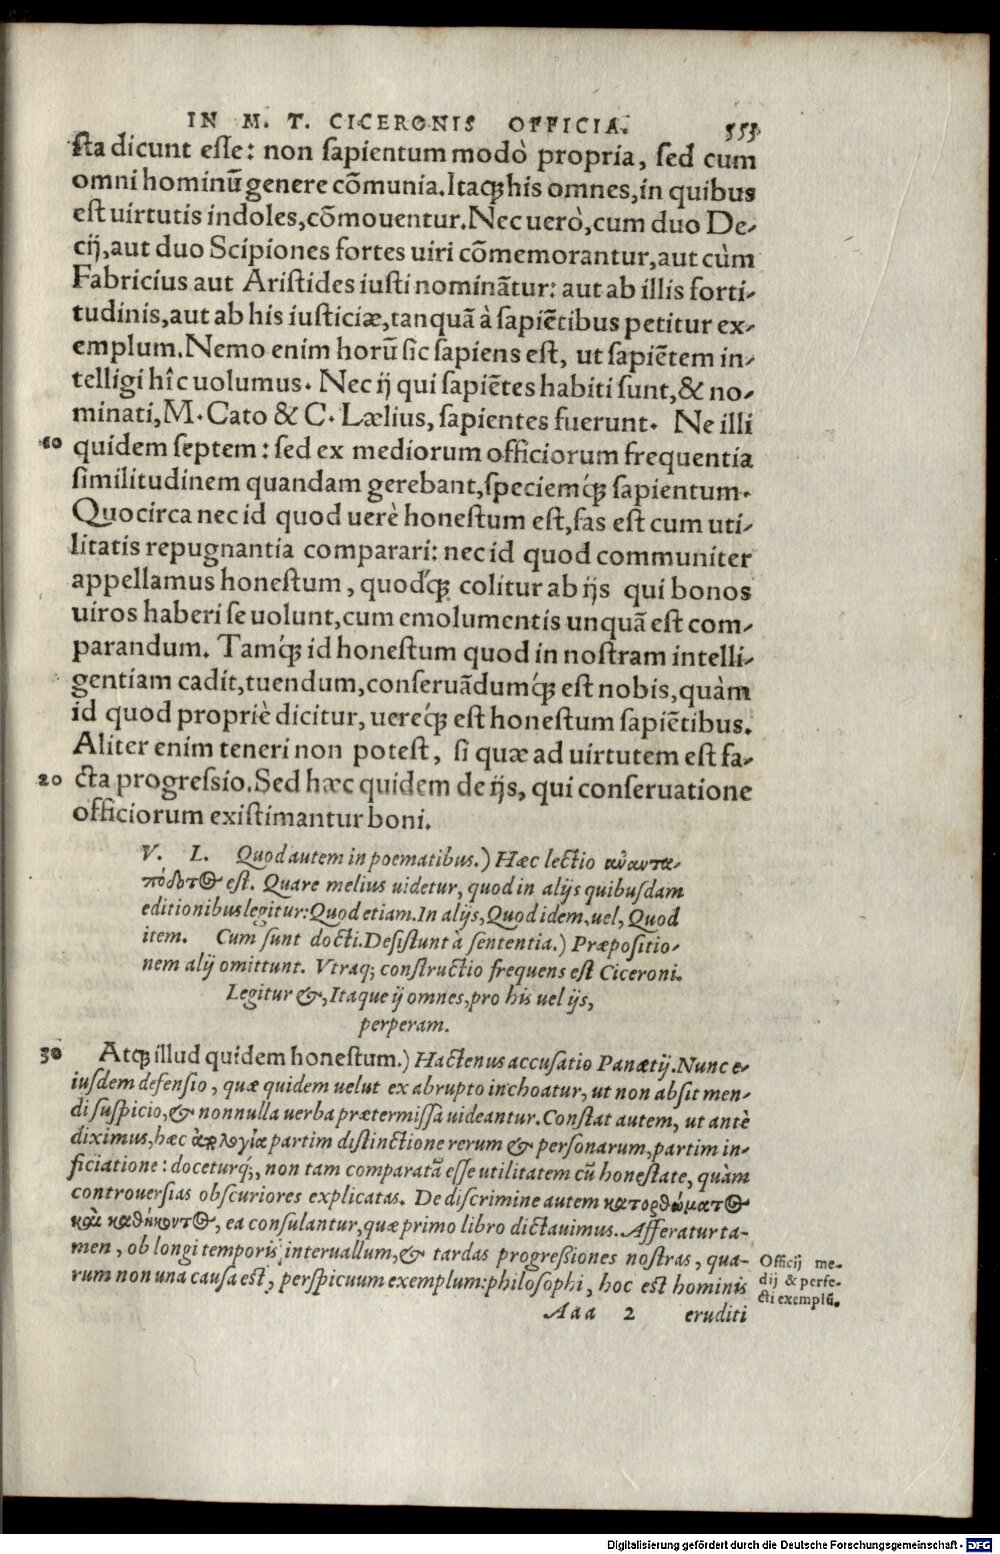 IN M. T. CICERONIS OFFICIA. 553
sta dicunt esse: non sapientum modò propria, sed cum
omni hominū genere cōmunia. Itaq; his omnes, in quibus
est uirtutis indoles, cōmouentur. Nec uerò, cum duo De-
cij, aut duo Scipiones fortes uiri cōmemorantur, aut cùm
Fabricius aut Aristides iusti nominātur: aut ab illis forti-
tudinis, aut ab his iusticiæ, tanquā à sapiētibus petitur ex-
emplum. Nemo enim horū sic sapiens est, ut sapiētem in-
telligi hîc uolumus. Nec ij qui sapiētes habiti sunt, & no-
minati, M. Cato & C. Lælius, sapientes fuerunt. Ne illi
10 quidem septem: sed ex mediorum officiorum frequentia
similitudinem quandam gerebant, speciemq́; sapientum.
Quocirca nec id quod uerè honestum est, fas est cum uti-
litatis repugnantia comparari: nec id quod communiter
appellamus honestum, quodq́; colitur ab ijs qui bonos
uiros haberi se uolunt, cum emolumentis unquā est com-
parandum. Tamq́; id honestum quod in nostram intelli-
gentiam cadit, tuendum, conseruādumq́; est nobis, quàm
id quod propriè dicitur, uereq́; est honestum sapiētibus.
Aliter enim teneri non potest, si quæ ad uirtutem est fa-
20 cta progressio. Sed hæc quidem de ijs, qui conseruatione
officiorum existimantur boni.
V. L. Quod autem in poematibus.) Hæc lectio ἀνανταπόδοτος
est. Quare melius uidetur, quod in alijs quibusdam
editionibus legitur: Quod etiam. In alijs, Quod idem, uel, Quod
item. Cum sunt docti. Desistunt à sententia.) Præpositio-
nem alij omittunt. Vtraq; constructio frequens est Ciceroni.
Legitur &, Itaque ij omnes, pro his uel ijs,
perperam.
30 Atq; illud quidem honestum.) Hactenus accusatio Panætij. Nunc e-
iusdem defensio, quæ quidem uelut ex abrupto inchoatur, ut non absit men-
di suspicio, & nonnulla uerba prætermissa uideantur. Constat autem, ut antè
diximus, hæc partim distinctione rerum & personarum, partim in-
ficiatione: doceturq́;, non tam comparatā esse utilitatem cū honestate, quàm
controuersias obscuriores explicatas. De discrimine autem κατορθώματος
καὶ καθήκοντος, ea consulantur, quæ primo libro dictauimus. Afferatur ta-
men, ob longi temporis interuallum, & tardas progreßiones nostras, qua-
rum non una causa est, perspicuum exemplum: philosophi, hoc est hominis
Officij me-
dij & perfe-
cti exemplū.
Aaa 2 eruditi
Digitalisierung gefördert durch die Deutsche Forschungsgemeinschaft - DFG